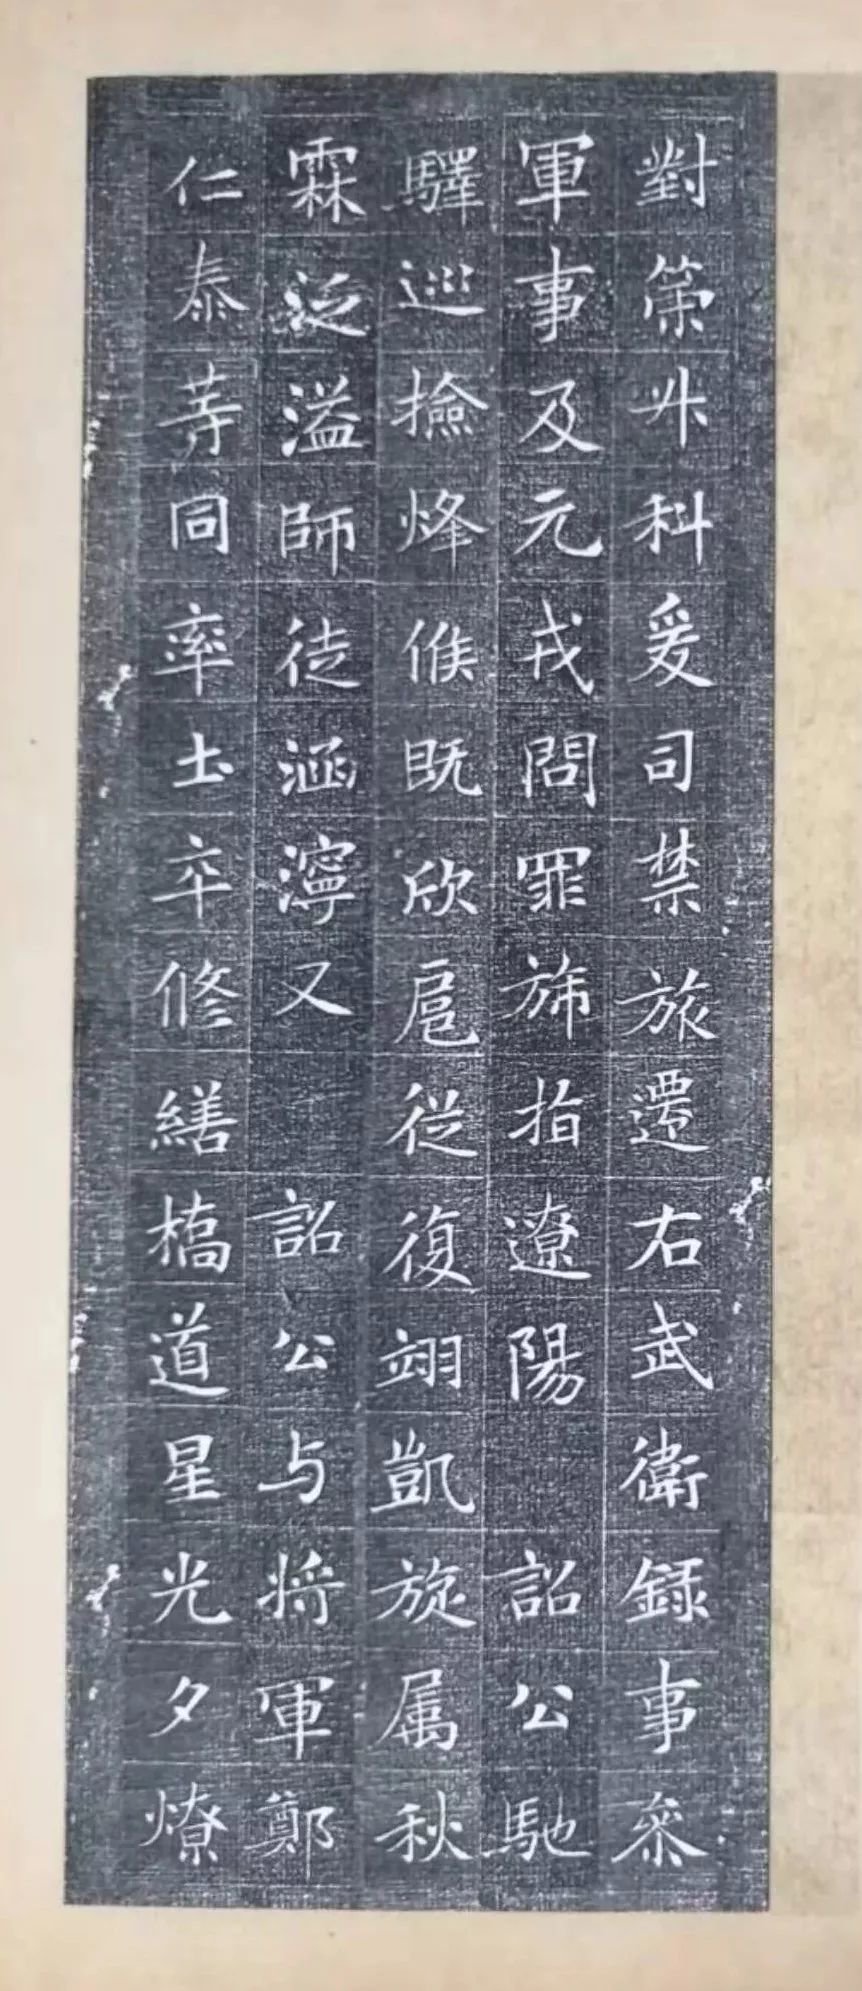 對策升科爰司禁旅遷右武衛録事叅
軍事及元戎問罪旆指遼陽詔公馳
驛巡撿烽候既欣扈從復翊凱旋属秋
霖泛溢師徒涵濘又詔公与将軍鄭
仁泰等同率士卒修繕橋道星光夕燎